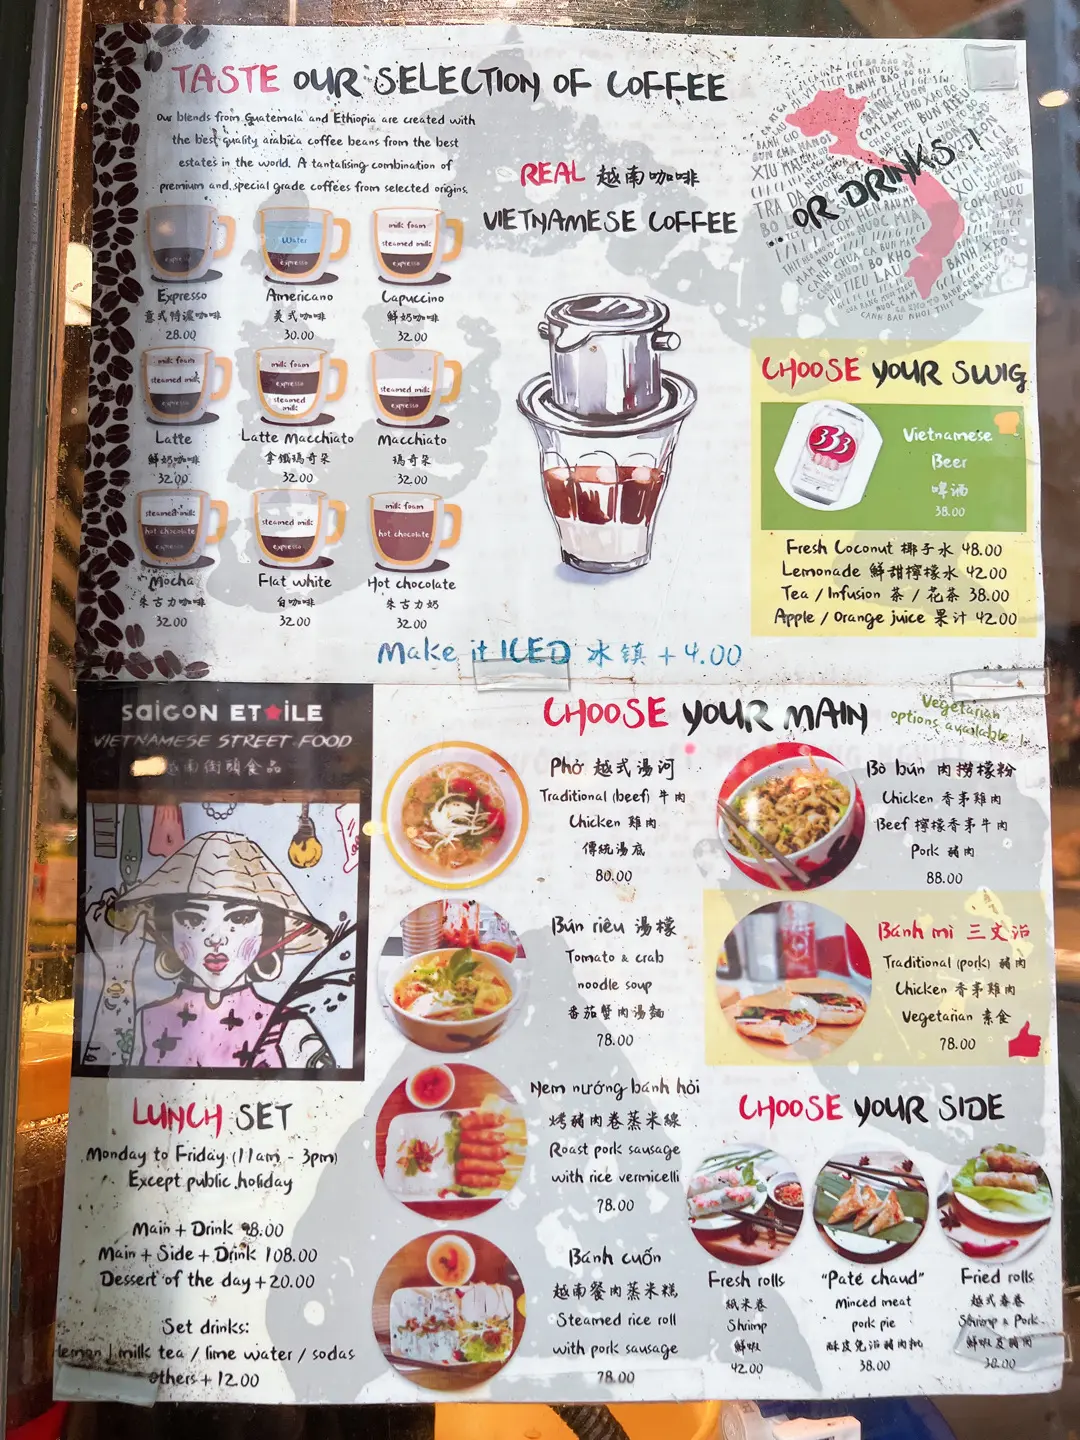 TASTE OUR SELECTION OF COFFEE
Our blends from Guatemala and Ethiopia are created with
the best quality arabica coffee beans from the best
estates in the world. A tantalising combination of
premium and special grade coffees from selected origins.
REAL 越南咖啡
VIETNAMESE COFFEE
...OR DRINKS!
expresso
Expresso
意式特濃咖啡
28.00
Water
expresso
Americano
美式咖啡
30.00
milk foam
steamed milk
expresso
Capuccino
鮮奶咖啡
32.00
milk foam
steamed milk
expresso
Latte
鮮奶咖啡
32.00
milk foam
expresso
steamed
milk
Latte Macchiato
拿鐵瑪奇朵
32.00
steamed milk
expresso
Macchiato
瑪奇朵
32.00
steamed milk
hot chocolate
expresso
Mocha
朱古力咖啡
32.00
steamed milk
expresso
Flat white
白咖啡
32.00
milk foam
hot chocolate
Hot chocolate
朱古力奶
32.00
Make it ICED 冰镇 + 4.00
CHOOSE YOUR SWIG
333
Vietnamese
Beer
啤酒
38.00
Fresh Coconut 椰子水 48.00
Lemonade 鮮甜檸檬水 42.00
Tea / Infusion 茶 / 花茶 38.00
Apple / Orange juice 果汁 42.00
SAIGON ETOILE
VIETNAMESE STREET FOOD
越南街頭食品
LUNCH SET
Monday to Friday (11am - 3pm)
Except public holiday
Main + Drink 98.00
Main + Side + Drink 108.00
Dessert of the day + 20.00
Set drinks:
lemon / milk tea / lime water / sodas
others + 12.00
CHOOSE YOUR MAIN
Vegetarian
options available !
Phở 越式湯河
Traditional (beef) 牛肉
Chicken 雞肉
傳統湯底
80.00
Bò bún 肉撈檬粉
Chicken 香茅雞肉
Beef 檸檬香茅牛肉
Pork 豬肉
88.00
Bún riêu 湯檬
Tomato & crab
noodle soup
番茄蟹肉湯麵
78.00
Bánh mì 三文治
Traditional (pork) 豬肉
Chicken 香茅雞肉
Vegetarian 素食
78.00
Nem nướng bánh hỏi
烤豬肉卷蒸米線
Roast pork sausage
with rice vermicelli
78.00
Bánh cuốn
越南餐肉蒸米糕
Steamed rice roll
with pork sausage
78.00
CHOOSE YOUR SIDE
Fresh rolls
紙米卷
Shrimp
鮮蝦
42.00
"Paté chaud"
Minced meat
pork pie
酥皮免治豬肉批
38.00
Fried rolls
越式春卷
Shrimp & Pork
鮮蝦及豬肉
38.00